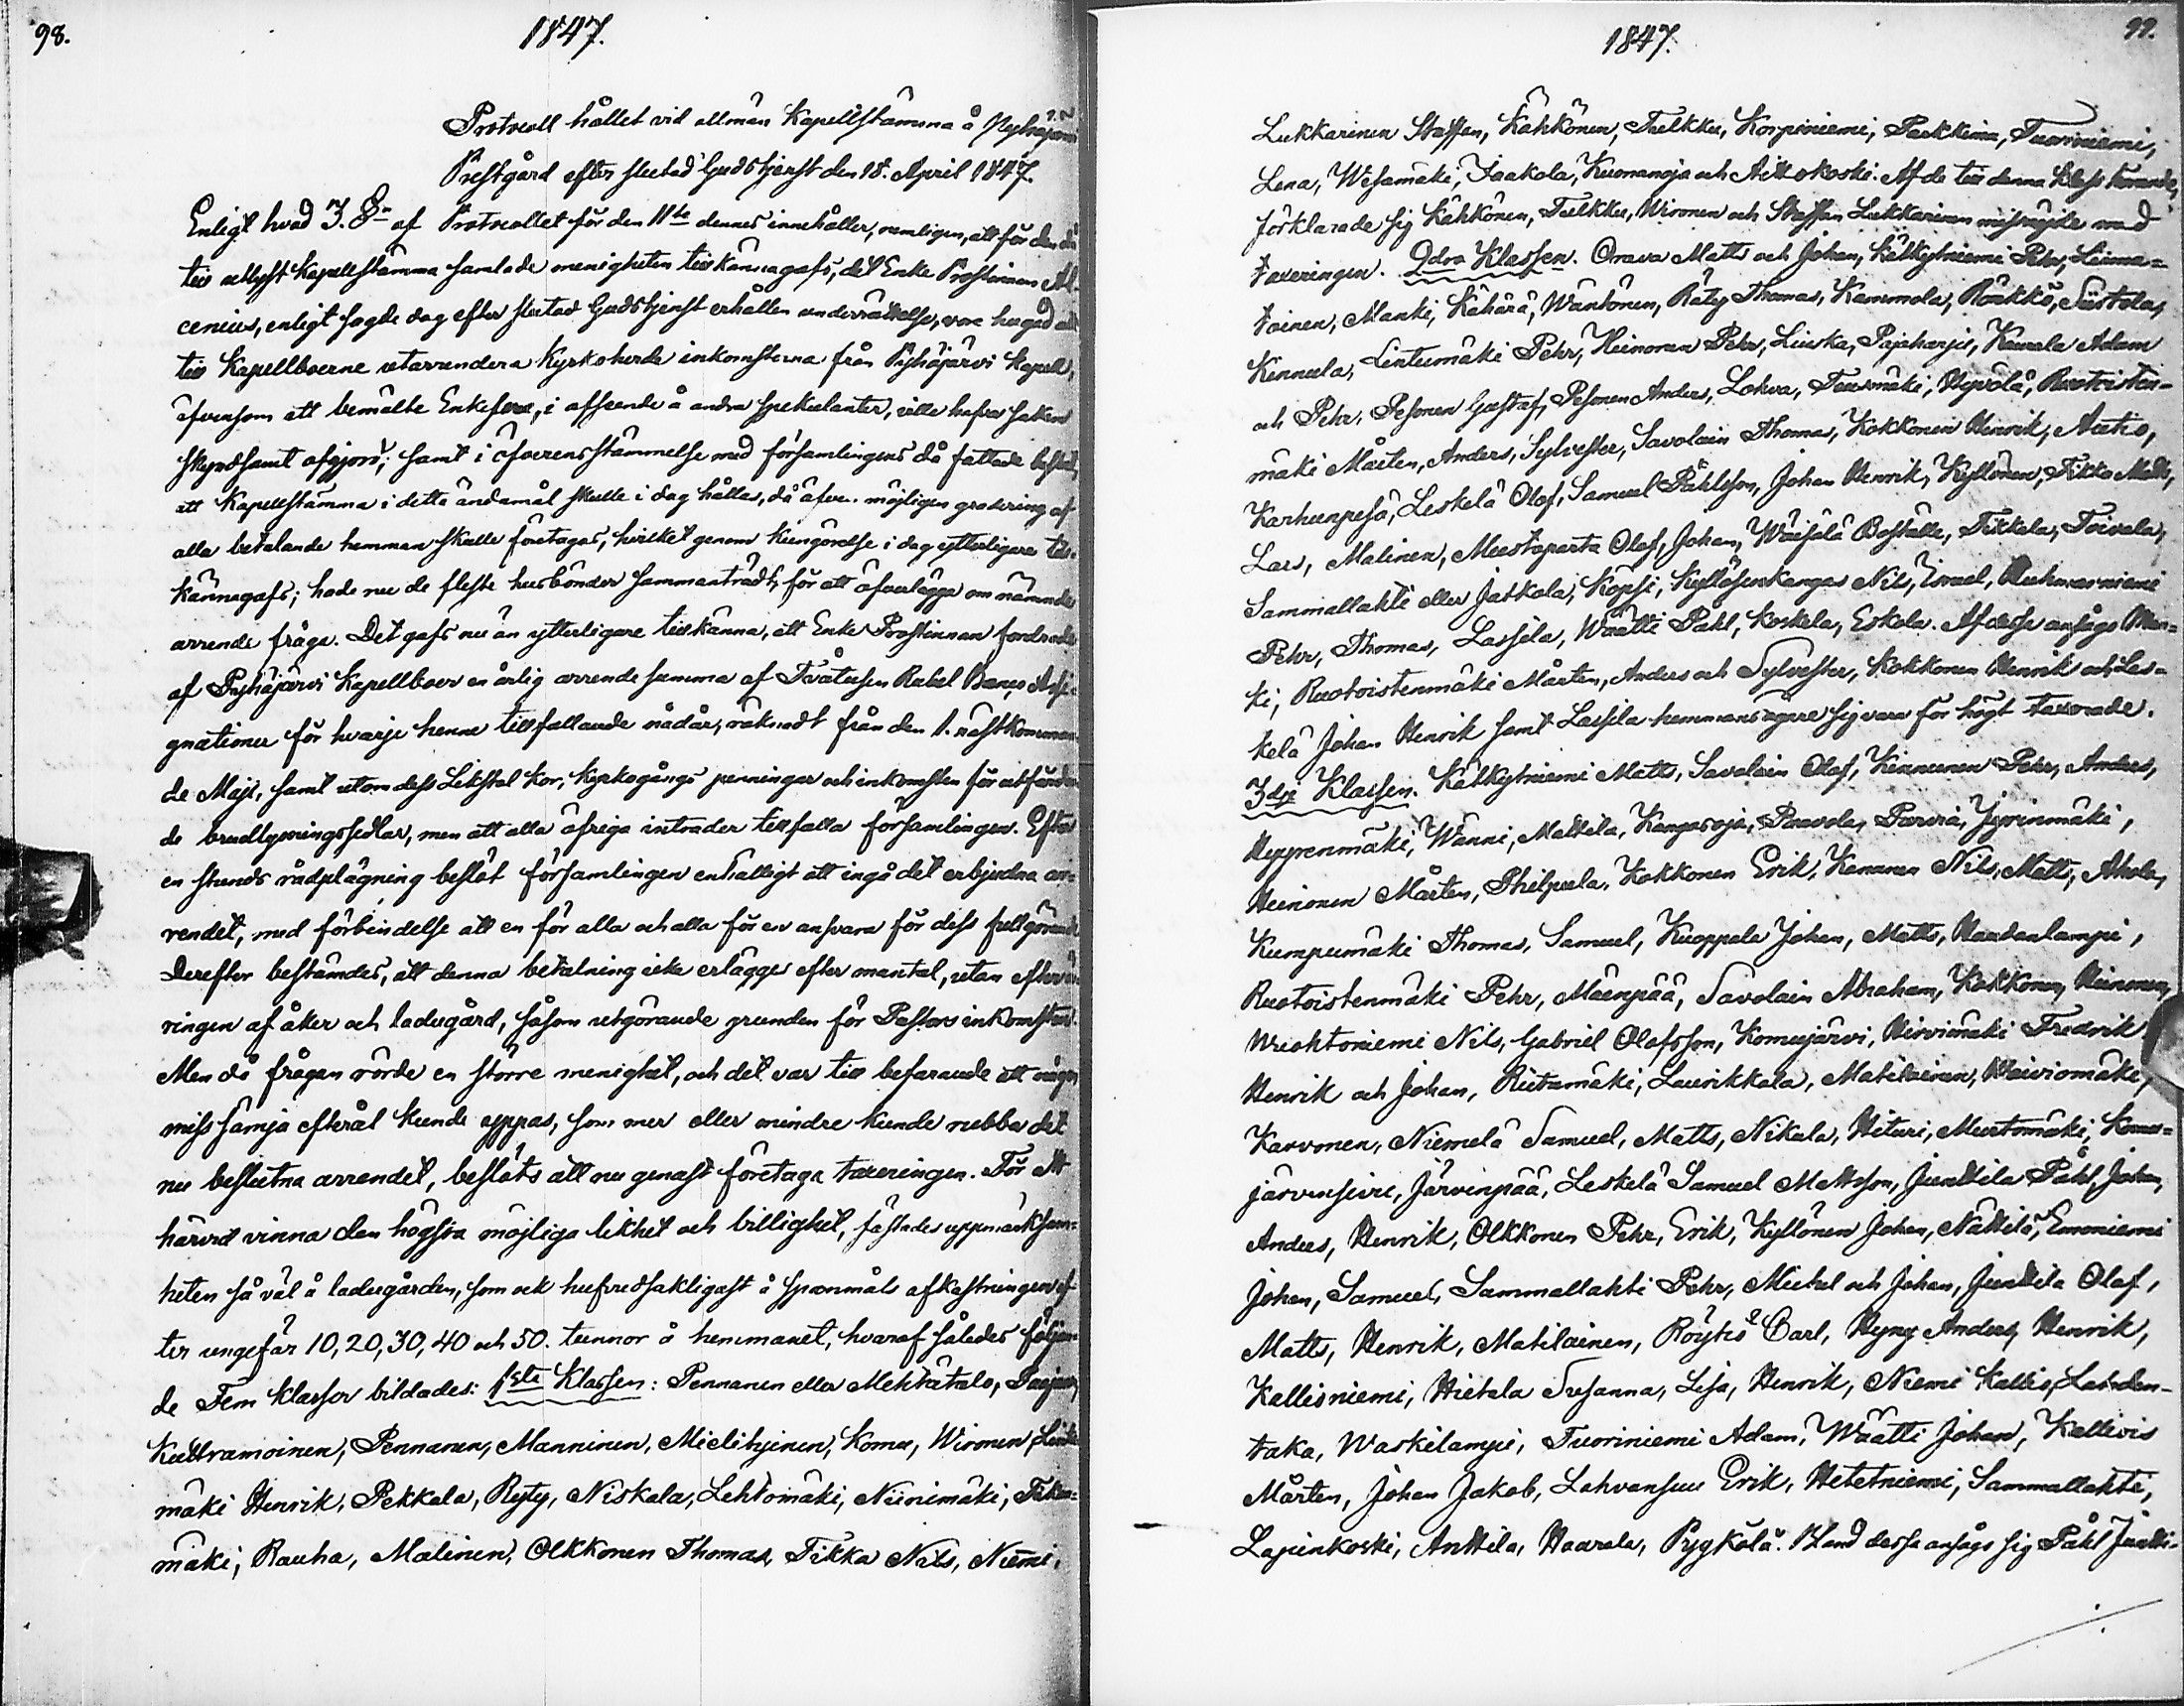 98.
1847.
Protocoll hållet vid allmän Kapellstämma å Pyhäjärvi
Prestgård efter slutad Gudstjenst den 18. April 1847.
Enligt hvad 3. §n af Protocollet för den 11te dennes innehåller, nemligen, att för den då
till utlyst Kapellstämma samlade menigheten tillkännagafs, det Enke Prostinnan Al-
cenius, enligt sagde dag efter slutad Gudstjenst erhållen underrättelse, vore hugad att
till Kapellboerne utarrendera Kyrkoherde inkomsterna från Pyhäjärvi Kapell,
äfvensom att bemälte Enkefru, i afseende å andra spekulanter, ville hafva saken
skyndsamt afgjord; samt i öfverensstämmelse med församlingens då fattade beslut,
att Kapellstämma i detta ändamål skulle i dag hållas, då äfven möjligen gradering af
alla betalande hemman skulle företagas, hvilket genom kungörelse i dag ytterligare till-
kännagafs; hade nu de fleste husbönder sammanträdt, för att öfverlägga om nämnde
arrende fråga. Det gafs nu än ytterligare tillkänna, att Enke Prostinnan fordrade
af Pyhäjärvi Kapellboer en årlig arrende summa af Tvåtusen Rubel Banco Assi-
gnationer för hvarje henne tillfallande nådår, räknadt från den 1. nästkomman-
de Maji, samt utom dess Likstol kor, kyrkogångs penningar och inkomsten för utfärdan-
de brudlysningssedlar, men att alla öfriga intrader tillfalla församlingen. Efter
en stunds rådplägning beslöt församlingen enhälligt att ingå det erbjudna ar-
rendet, med förbindelse att en för alla och alla för en ansvara för dess fullgörande.
Derefter bestämdes, att denna betalning icke erlägges efter mantal, utan efter
ringen af åker och ladugård, såsom utgörande grunden för Pastors inkomsten.
Men då frågan rörde en större menighet, och det var till befarande att någon
misssämja efteråt kunde yppas, som mer eller mindre kunde rubba det
nu beslutna arrendet, beslöts att nu genast företaga taxeringen. För att
härvid vinna den högsta möjliga likhet och billighet, fästades uppmärksam-
heten så väl å ladugården, som ock hufvudsakligast å spanmåls afkastningen ef-
ter ungefär 10, 20, 30, 40 och 50. tunnor å hemmanet, hvaraf således följan-
de Fem klasser bildades: 1sta Klassen: Pennanen eller Mehtätalo,
Kuttramoinen, Pennanen, Manninen, Mielityinen, Komu, Wironen,
mäki Henrik, Pekkala, Ryty, Niskala, Lehtomäki, Niinimäki,
mäki, Rauha, Malinen, Olkkonen Thomas, Tikka Nils, Niemi,
99.
1847.
Lukkarinen Staffan, Kähkönen, Tulkku, Korpiniemi, Parkkima, Tuoriniemi,
Lena, Wesamäki, Jaakola, Kuonanoja och Aittokoski. Af de till denna Klass
förklarade sig Kähkönen, Tulkku, Wironen och Staffan Lukkarinen missnöjde med
taxeringen. 2dra Klassen. Orava Matts och Johan, Kätkytniemi Pehr, Liima-
tainen, Manki, Kähärä, Wänkönen, Räty Thomas, Kammola, Rönkkö,
Kinnula, Lintumäki Pehr, Heinonen Pehr, Liuska, Pajaharju, Kaurala Adam
och Pehr, Pesonen Gustaf, Pesonen Anders, Lohva, Tuusmäki, Hyvölä, Ruotoisten-
mäki Mårten, Anders, Sylvester, Savolain Thomas, Kokkonen Henrik, Autio,
Karhunpesä, Leskelä Olof, Samuel Påhlsson, Johan Henrik, Kyllönen, Tikka Matts,
Lars, Malinen, Mustaparta Olof, Johan, Wäisälä Boställe, Tikkala, Toivala,
Sammallahti eller Jatkola, Köpsi, Kyllösenkangas Nils, Israel, Ruhmasniemi
Pehr, Thomas, Lassila, Wäätti Påhl, Koskela, Eskola. Af desse ansågo Man-
ki, Ruotoistenmäki Mårten, Anders och Sylvester, Kokkonen Henrik och Les-
kelä Johan Henrik samt Lassila hemmansägare sig vara för högt taxerade.
3dje Klassen. Kätkytniemi Matts, Savolain Olof, Kinnunen Pehr, Anders,
Hyyrenmäki, Wänni, Mattila, Kangasoja, Paavola, Parvia, Jyrinmäki,
Heinonen Mårten, Philpula, Kokkonen Erik, Kananen Nils, Matts, Ahola,
Kumpumäki Thomas, Samuel, Kuoppala Johan, Matts, Haudanlampi,
Ruotoistenmäki Pehr, Mäenpää, Savolain Abraham, Kokkonen, Heinonen,
Wuohtoniemi Nils, Gabriel Olofsson, Komujärvi, Hirvimäki Fredrik
Henrik och Johan, Riitamäki, Laurikkala, Matilainen, Waiviomäki,
Karvonen, Niemelä Samuel, Matts, Nikula, Hituri, Murtomäki, Komu-
järvensivu, Järvenpää, Leskelä Samuel Mattsson, Junttila Påhl, Johan,
Anders, Henrik, Olkkonen Pehr, Erik, Kyllönen Johan, Nättilä, Emoniemi
Johan, Samuel, Sammallahti Pehr, Michel och Johan, Junttila Olof,
Matts, Henrik, Matilainen, Röytiö Carl, Hyny Anders, Henrik,
Kallioniemi, Hietala Susanna, Lisa, Henrik, Niemi Kallio, Lahden-
taka, Waskilampi, Tuoriniemi Adam, Wäätti Johan, Kallivis
Mårten, Johan Jakob, Lohvansuu Erik, Hetetniemi, Sammallahti,
Lapinkoski, Anttila, Haarala, Pygkölä. Bland dessa ansågo sig Påhl Juntti-